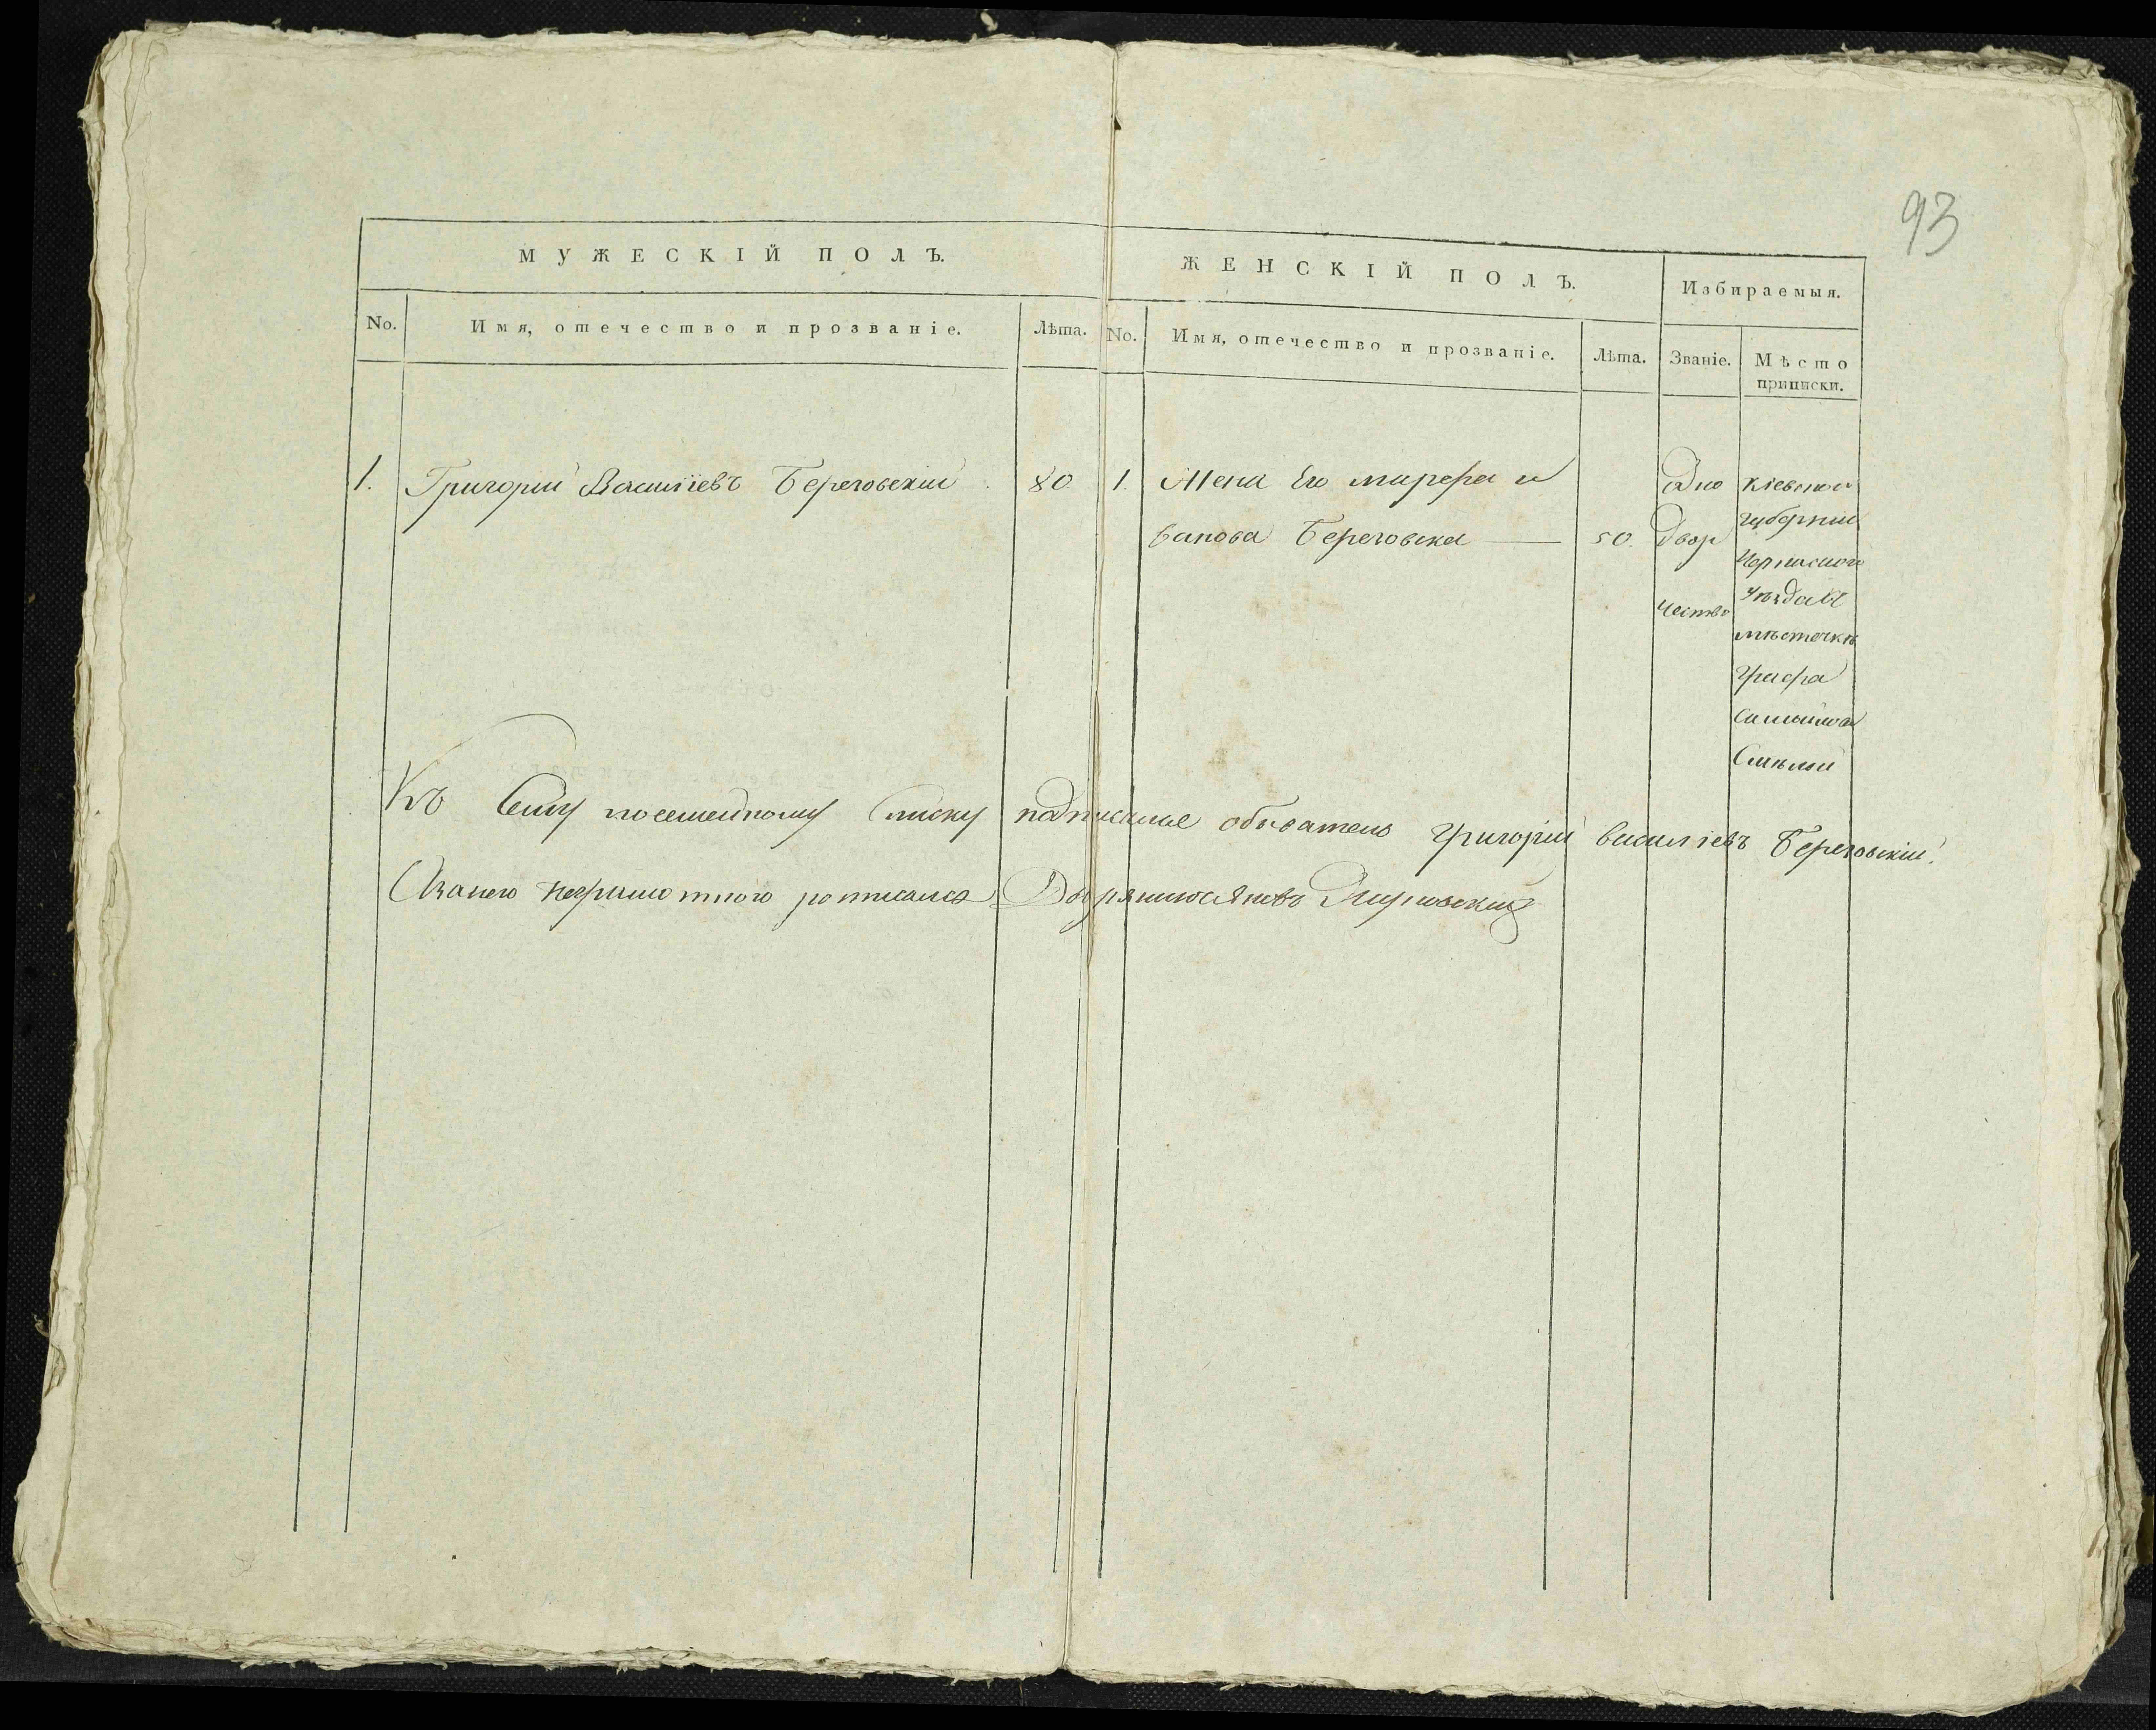 93
МУЖЕСКІЙ ПОЛЪ.
ЖЕНСКІЙ ПОЛЪ.
Избираемыя.
No.
Имя, отечество и прозваніе.
Лѣта.
No.
Имя, отечество и прозваніе.
Лѣта.
Званіе.
Мѣсто
приписки.
1.
Григорій Василіевъ Береговскій
80
1.
Жена Его марфа и
ванова Береговска —
50.
Одно
двор
чество
Кіевской
губерніи
Черкаского
уѣзда въ
мѣстечкѣ
Графа
Самойлова
Смѣлой
Къ Сему посемейному Списку подписался обыватель Григорій василіевъ Береговскій.
Азанего неграмотного росписался Дворянинъ Яковъ